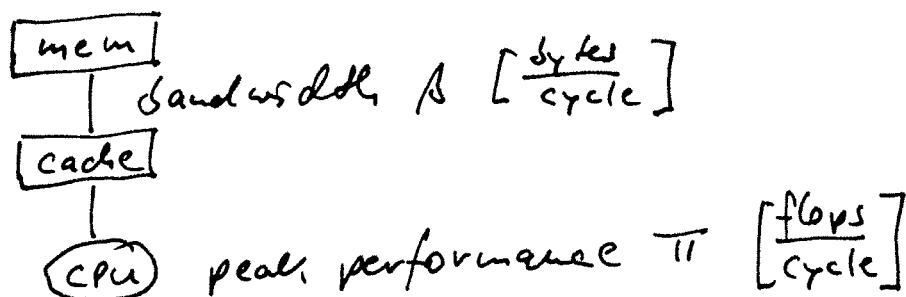 mem
bandwidth β [bytes/cycle]
cache
CPU peak performance π [flops/cycle]